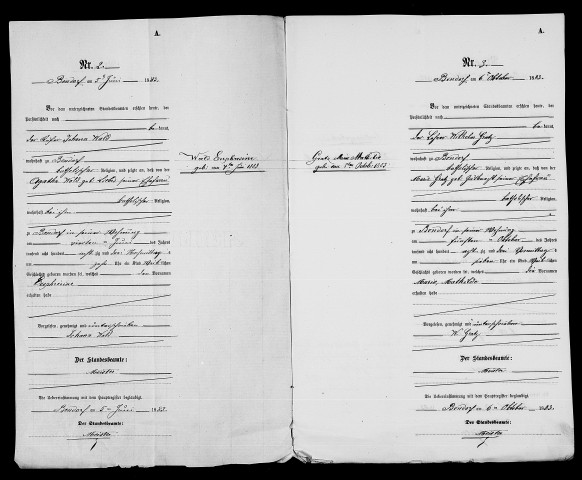 A.
Nr. 2.
Bondorf am 5 Juni 1883.
Vor dem unterzeichneten Standesbeamten erschien heute, der
Persönlichkeit nach
bekannt,
der Johann Wald
wohnhaft zu Bondorf
katholischer Religion, und zeigte an, daß von der
Agatha Wald geb. seiner Ehefrau
katholischer Religion,
wohnhaft bei ihm
zu Bondorf in seiner Wohnung
am vierten Juni des Jahres
tausend acht hundert acht zig und drei Vormittags
um Uhr ein Kind weiblichen
Geschlechts geboren worden sei, welches den Vornamen
Euphrosine
erhalten habe
Vorgelesen, genehmigt und unterschrieben
Johann Wald
Der Standesbeamte:
Die Uebereinstimmung mit dem Hauptregister beglaubigt
Bondorf am 5 Juni 1883.
Der Standesbeamte:
Wald Euphrosine
geb. am 4ten Juni 1883
A.
Nr. 3.
Bondorf am 6 Oktober 1883.
Vor dem unterzeichneten Standesbeamten erschien heute, der
Persönlichkeit nach
bekannt,
der Lehrer Wilhelm
wohnhaft zu Bondorf
katholischer Religion, und zeigte an, daß von der
Marie geb. seiner Ehefrau
katholischer Religion,
wohnhaft bei ihm
zu Bondorf in seiner Wohnung
am fünften Oktober des Jahres
tausend acht hundert acht zig und drei Vormittags
um sieben Uhr ein Kind weiblichen
Geschlechts geboren worden sei, welches die Vornamen
Maria, Mathilde
erhalten habe
Vorgelesen, genehmigt und unterschrieben
W.
Der Standesbeamte:
Die Uebereinstimmung mit dem Hauptregister beglaubigt
Bondorf am 6 Oktober 1883.
Der Standesbeamte:
Maria Mathilde
geb. am 5ten Oktbr 1883